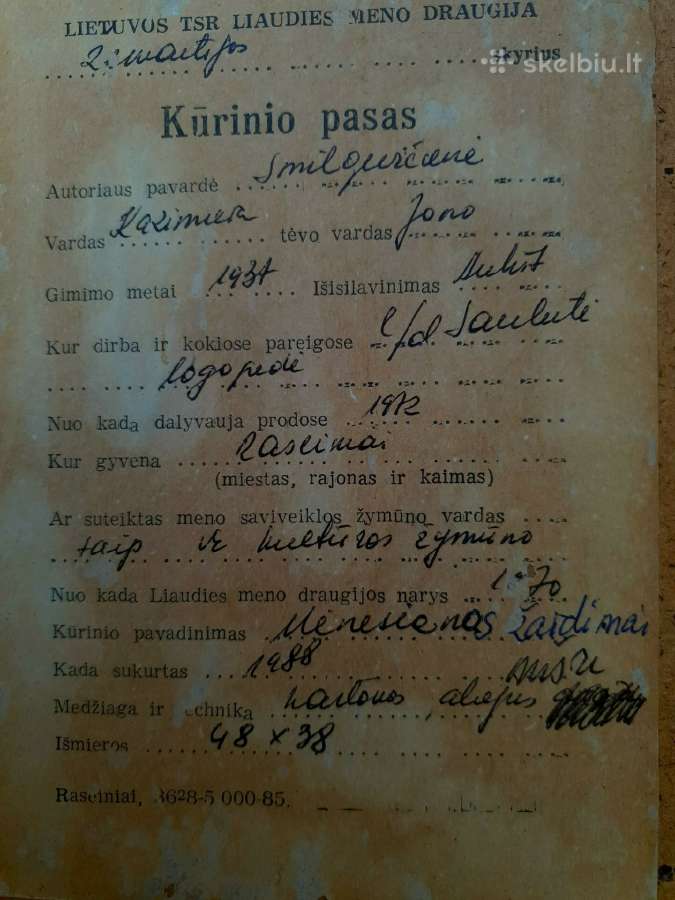 LIETUVOS TSR LIAUDIES MENO DRAUGIJA
Žemaitijos skyrius
skelbiu.lt
Kūrinio pasas
Autoriaus pavardė Smilgevičienė
Vardas Kazimiera tėvo vardas Jono
Gimimo metai 1937 Išisilavinimas Aukšt
Kur dirba ir kokiose pareigose l/d Saulutė
logopedė
Nuo kada dalyvauja prodose 1972
Kur gyvena Raseiniai
(miestas, rajonas ir kaimas)
Ar suteiktas meno saviveiklos žymūno vardas
taip ir kultūros žymūno
Nuo kada Liaudies meno draugijos narys 1970
Kūrinio pavadinimas Mėnesienos Žaidimai
Kada sukurtas 1988
Medžiaga ir technika kartonas, aliejus
Išmieros 48 x 38
Raseiniai, 3628-5 000-85.